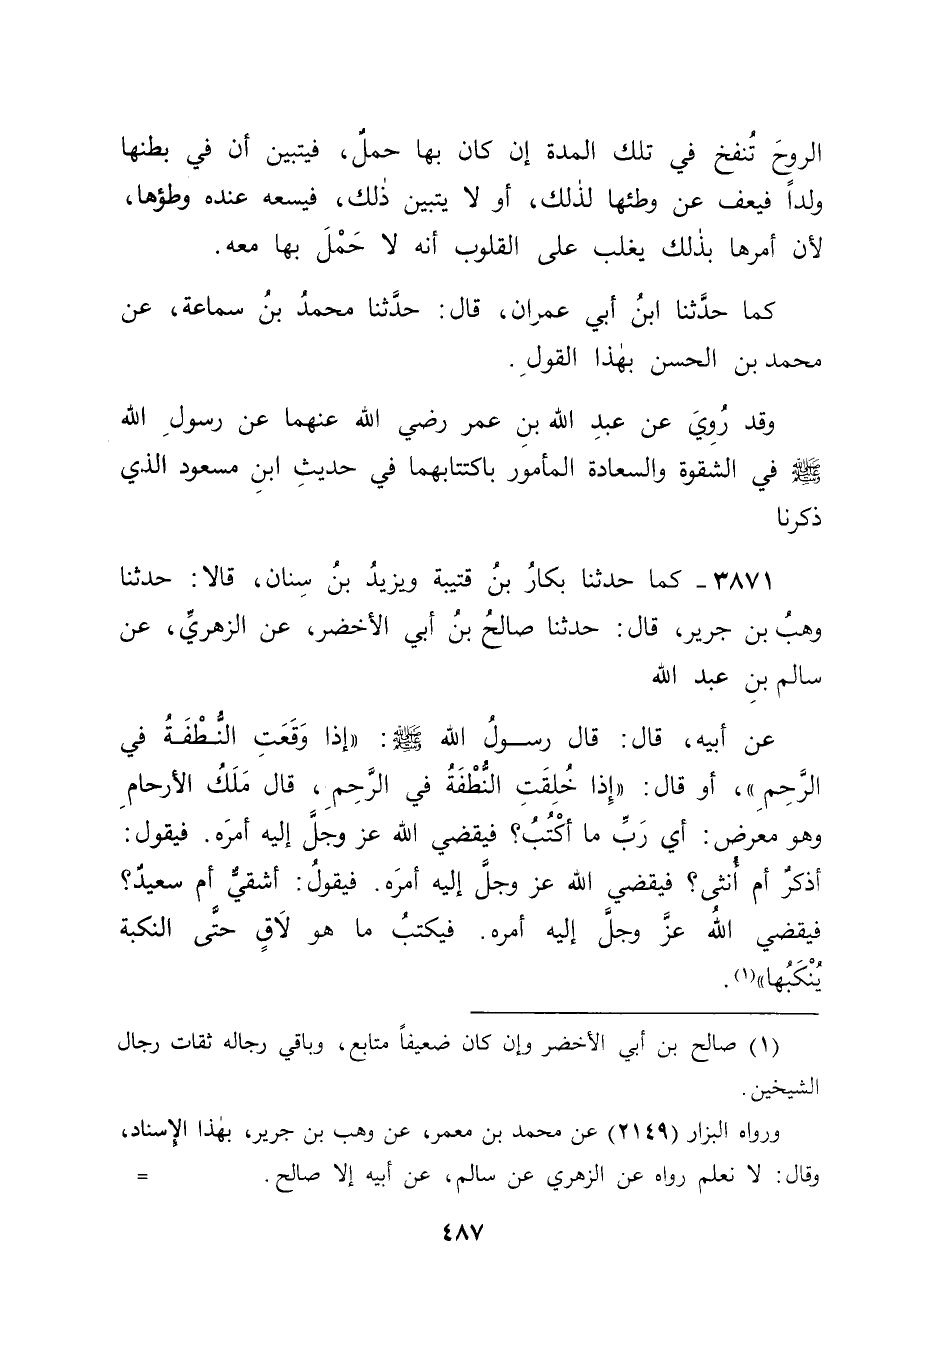 الروحَ تُنفخ في تلك المدة إن كان بها حملٌ، فيتبين أن في بطنها
ولداً فيعف عن وطئها لذٰلك، أو لا يتبين ذٰلك، فيسعه عنده وطؤها،
لأن أمرها بذٰلك يغلب على القلوب أنه لا حَمْلَ بها معه.
كما حدَّثنا ابنُ أبي عمران، قال: حدَّثنا محمدُ بنُ سماعة، عن
محمد بن الحسن بهٰذا القولِ.
وقد رُوِيَ عن عبدِ الله بنِ عمر رضي الله عنهما عن رسولِ الله
ﷺ في الشقوة والسعادة المأمور باكتتابهما في حديثِ ابنِ مسعود الذي
ذكرنا
٣٨٧١ ـ كما حدثنا بكارُ بنُ قتيبة ويزيدُ بنُ سِنان، قالا: حدثنا
وهبُ بن جرير، قال: حدثنا صالحُ بنُ أبي الأخضر، عن الزهريِّ، عن
سالم بنِ عبد الله
عن أبيه، قال: قال رسـولُ الله ﷺ: «إذا وَقَعَتِ النُّـطْفَـةُ في
الرَّحِمِ»، أو قال: «إِذا خُلِقَتِ النُّطْفَةُ في الرَّحِمِ، قال مَلَكُ الأرحامِ
وهو معرض: أي رَبِّ ما أَكْتُبُ؟ فيقضي الله عز وجلَّ إليه أمرَه. فيقول:
أذكرٌ أم أُنثى؟ فيقضي الله عز وجلَّ إليه أمرَه. فيقولُ: أشقيٌّ أم سعيدٌ؟
فيقضي اللهُ عزَّ وجلَّ إليه أمره. فيكتبُ ما هو لَاقٍ حتَّى النكبة
يُنْكَبُها»(١).
(١) صالح بن أبي الأخضر وإن كان ضعيفاً متابع، وباقي رجاله ثقات رجال
الشيخين.
ورواه البزار (٢١٤٩) عن محمد بن معمر، عن وهب بن جرير، بهٰذا الإسناد،
وقال: لا نعلم رواه عن الزهري عن سالم، عن أبيه إلا صالح. =
٤٨٧